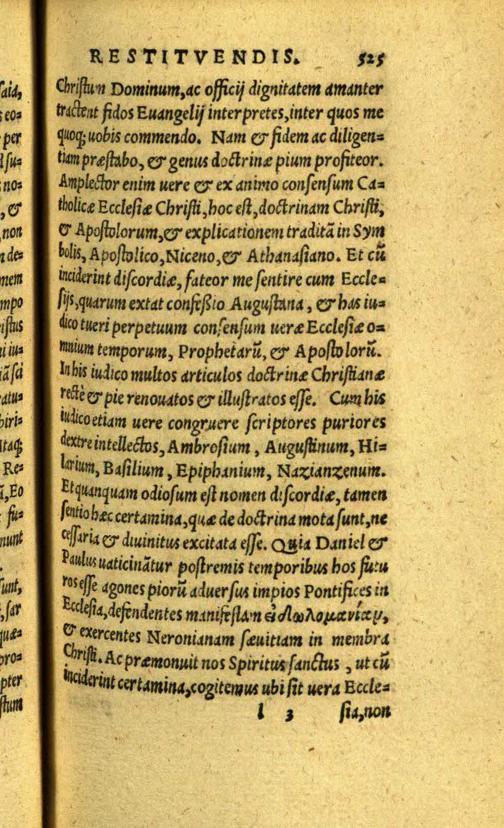 RESTITVENDIS. 525
Christum Dominum, ac officij dignitatem amanter
tractent fidos Euangelij interpretes, inter quos me
quoq; uobis commendo. Nam & fidem ac diligen=
tiam præstabo, & genus doctrinæ pium profiteor.
Amplector enim uere & ex animo consensum Ca=
tholicæ Ecclesiæ Christi, hoc est, doctrinam Christi,
& Apostolorum, & explicationem traditã in Sym
bolis, Apostolico, Niceno, & Athanasiano. Et cũ
inciderint discordiæ, fateor me sentire cum Eccle=
sijs, quarum extat confeßio Augustana, & has iu=
dico tueri perpetuum consensum ueræ Ecclesiæ o=
mnium temporum, Prophetarũ, & Apostolorũ.
In his iudico multos articulos doctrinæ Christianæ
rectè & pie renouatos & illustratos esse. Cum his
iudico etiam uere congruere scriptores puriores
dextre intellectos, Ambrosium, Augustinum, Hi=
larium, Basilium, Epiphanium, Nazianzenum.
Et quanquam odiosum est nomen discordiæ, tamen
sentio hæc certamina, quæ de doctrina mota sunt, ne
cessaria & diuinitus excitata esse. Quia Daniel &
Paulus uaticinãtur postremis temporibus hos futu
ros esse agones piorũ aduersus impios Pontifices in
Ecclesia, defendentes manifestam εἰδωλομανίαν,
& exercentes Neronianam sæuitiam in membra
Christi. Ac præmonuit nos Spiritus sanctus, ut cũ
inciderint certamina, cogitemus ubi sit uera Eccle=
l 3 sia, non
saia,
per
, &
non
nem
mpo
istus
Itaq;
Re=
, Eo
sunt,
, sar
quæ=
pro=
pter
stum